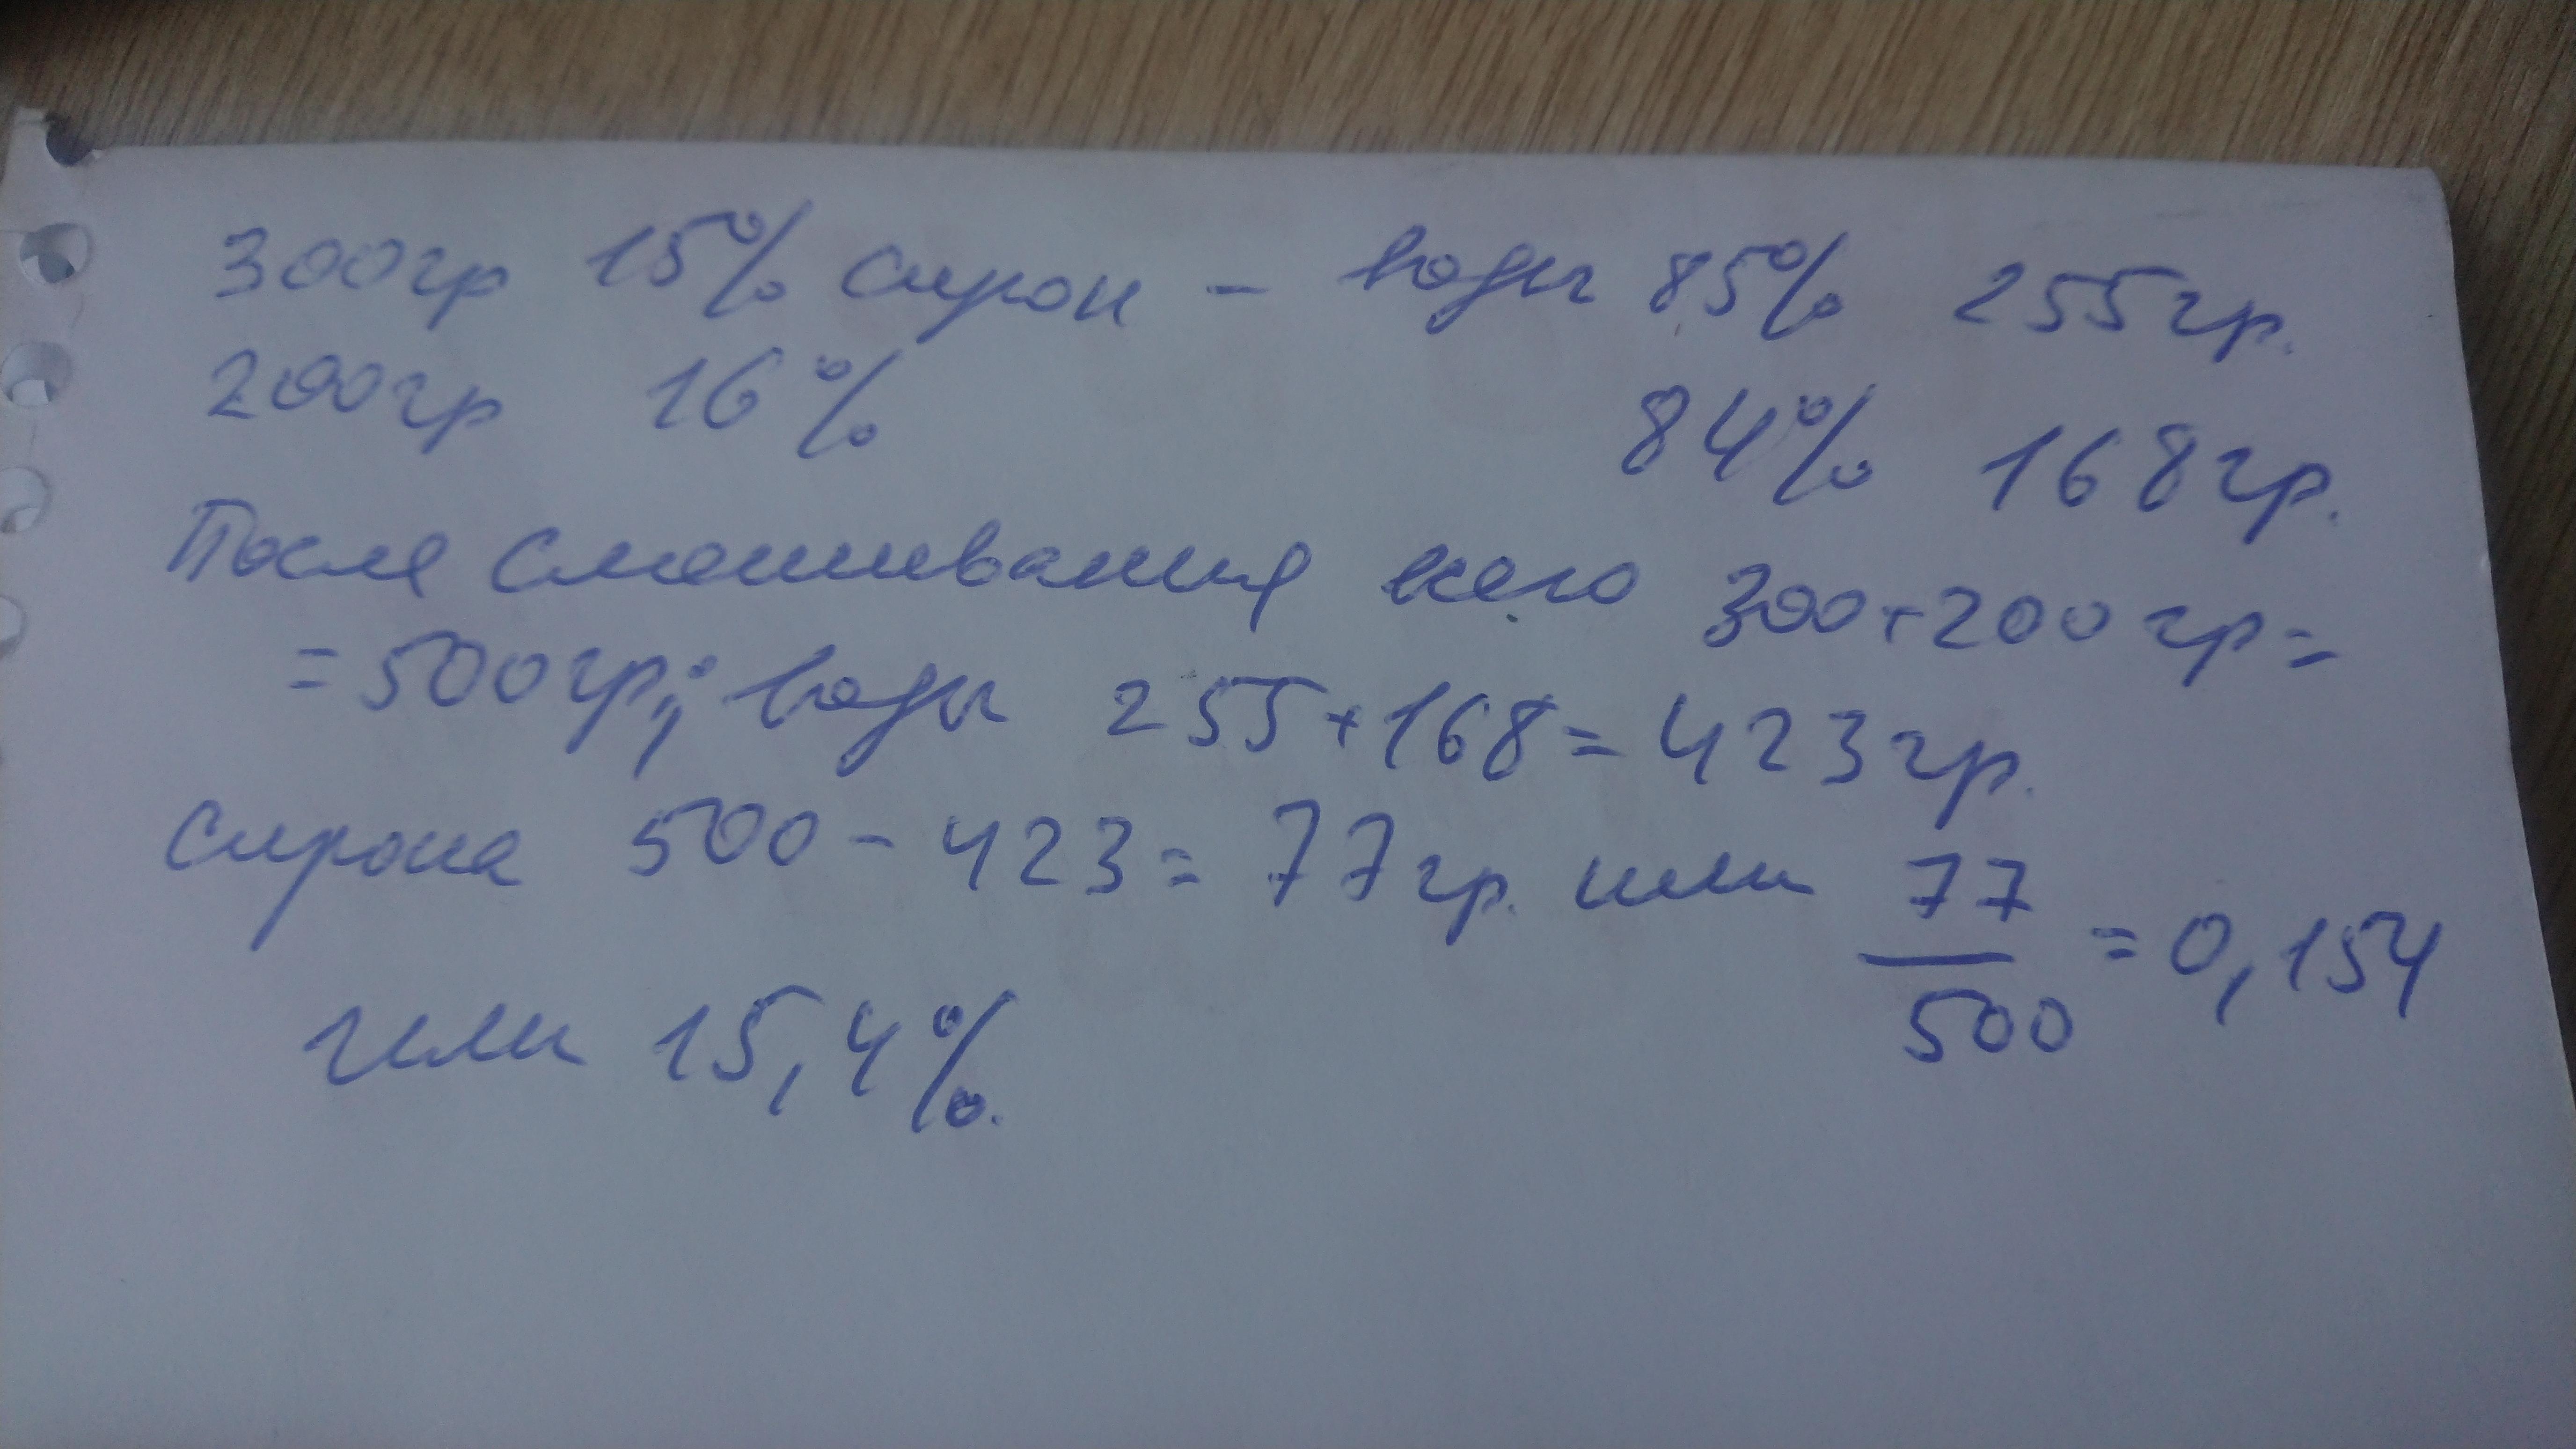 300гр 15% сироп - воды 85% 255гр.
200гр 16% 84% 168гр.
После смешивания всего 300+200гр=
=500гр; воды 255+168=423гр.
сиропа 500-423=77гр. или 77/500=0,154
или 15,4%.